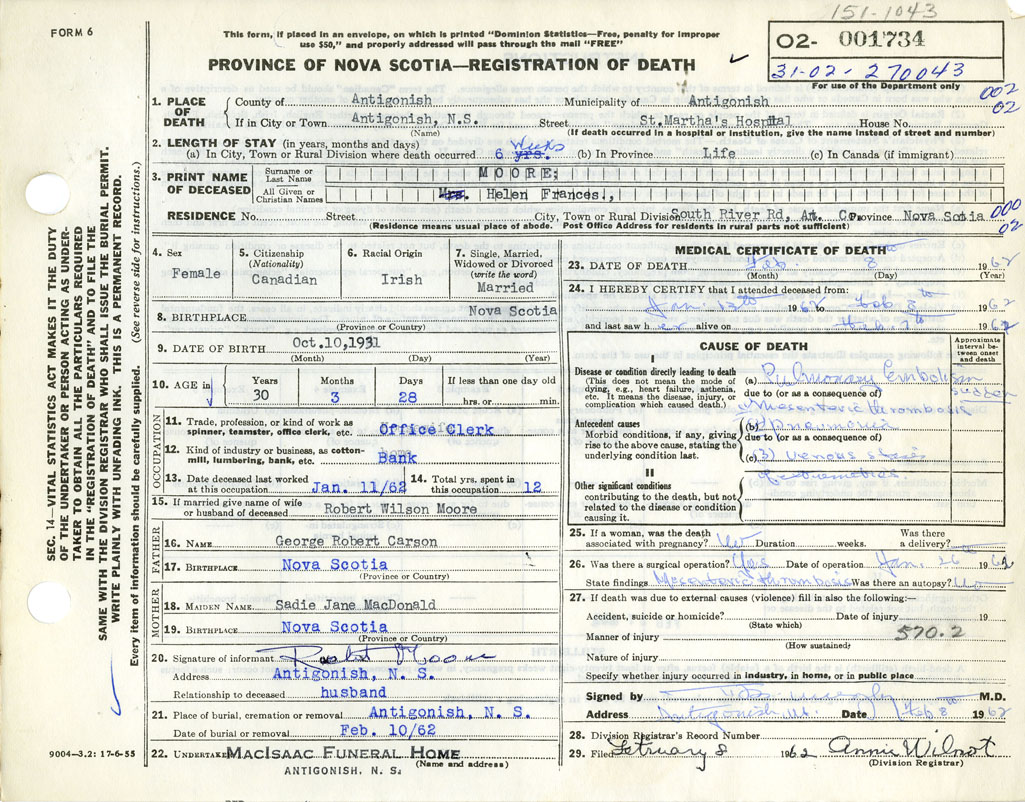 151-1043
FORM 6
This form, if placed in an envelope, on which is printed "Dominion Statistics—Free, penalty for improper
use $50," and properly addressed will pass through the mail "FREE"
PROVINCE OF NOVA SCOTIA—REGISTRATION OF DEATH
02- 001734
31-02-270043
For use of the Department only
002
02
1. PLACE OF DEATH
County of Antigonish Municipality of Antigonish
If in City or Town Antigonish, N.S. Street St.Martha's Hospital House No.
(Name) (If death occurred in a hospital or institution, give the name instead of street and number)
2. LENGTH OF STAY (in years, months and days)
(a) In City, Town or Rural Division where death occurred 6 yrs. Weeks (b) In Province Life (c) In Canada (if immigrant)
3. PRINT NAME OF DECEASED
Surname or Last Name MOORE:
All Given or Christian Names Mrs. Helen Frances.,
RESIDENCE No. Street City, Town or Rural Division South River Rd, Ant. Co Province Nova Scotia
000
02
(Residence means usual place of abode. Post Office Address for residents in rural parts not sufficient)
4. Sex Female
5. Citizenship (Nationality) Canadian
6. Racial Origin Irish
7. Single, Married, Widowed or Divorced (write the word) Married
8. BIRTHPLACE Nova Scotia
(Province or Country)
9. DATE OF BIRTH Oct,10,1931
(Month) (Day) (Year)
10. AGE in Years 30 Months 3 Days 28 If less than one day old hrs. or min.
OCCUPATION
11. Trade, profession, or kind of work as spinner, teamster, office clerk, etc. Office Clerk
12. Kind of industry or business, as cotton-mill, lumbering, bank, etc. Bank
13. Date deceased last worked at this occupation Jan. 11/62 14. Total yrs. spent in this occupation 12
15. If married give name of wife or husband of deceased Robert Wilson Moore
FATHER
16. NAME George Robert Carson
17. BIRTHPLACE Nova Scotia
(Province or Country)
MOTHER
18. MAIDEN NAME Sadie Jane MacDonald
19. BIRTHPLACE Nova Scotia
(Province or Country)
20. Signature of informant Robt Moore
Address Antigonish, N. S.
Relationship to deceased husband
21. Place of burial, cremation or removal Antigonish, N. S.
Date of burial or removal Feb. 10/62
22. UNDERTAKER MACISAAC FUNERAL HOME
(Name and address)
ANTIGONISH, N. S.
MEDICAL CERTIFICATE OF DEATH
23. DATE OF DEATH Feb. 8th 1962
(Month) (Day) (Year)
24. I HEREBY CERTIFY that I attended deceased from:
Jan. 12th 1962 to Feb 8th 1962
and last saw her alive on Feb. 7th 1962
CAUSE OF DEATH
Approximate interval between onset and death
I
Disease or condition directly leading to death
(This does not mean the mode of dying, e.g., heart failure, asthenia, etc. It means the disease, injury, or complication which caused death.)
(a) Pulmonary Embolism
sudden
due to (or as a consequence of)
Mesenteric thrombosis
Antecedent causes
Morbid conditions, if any, giving rise to the above cause, stating the underlying condition last.
(b) Pneumonia
due to (or as a consequence of)
(c) (3) venous stasis
of extremities
II
Other significant conditions
contributing to the death, but not related to the disease or condition causing it.
25. If a woman, was the death associated with pregnancy? No Duration weeks. Was there a delivery?
26. Was there a surgical operation? Yes Date of operation Jan. 26th 1962
State findings Mesenteric thrombosis Was there an autopsy? No
27. If death was due to external causes (violence) fill in also the following:—
Accident, suicide or homicide? Date of injury 19
(State which)
Manner of injury 570.2
(How sustained)
Nature of injury
Specify whether injury occurred in industry, in home, or in public place
Signed by M.D.
Address Antigonish Date Feb 8th 1962
28. Division Registrar's Record Number
29. Filed February 8 1962 Annie Wilmot
(Division Registrar)
SEC. 14—VITAL STATISTICS ACT MAKES IT THE DUTY
OF THE UNDERTAKER OR PERSON ACTING AS UNDER-
TAKER TO OBTAIN ALL THE PARTICULARS REQUIRED
IN THE "REGISTRATION OF DEATH" AND TO FILE THE
SAME WITH THE DIVISION REGISTRAR WHO SHALL ISSUE THE BURIAL PERMIT.
WRITE PLAINLY WITH UNFADING INK. THIS IS A PERMANENT RECORD.
Every item of information should be carefully supplied. (See reverse side for instructions.)
9004—3.2: 17-6-55